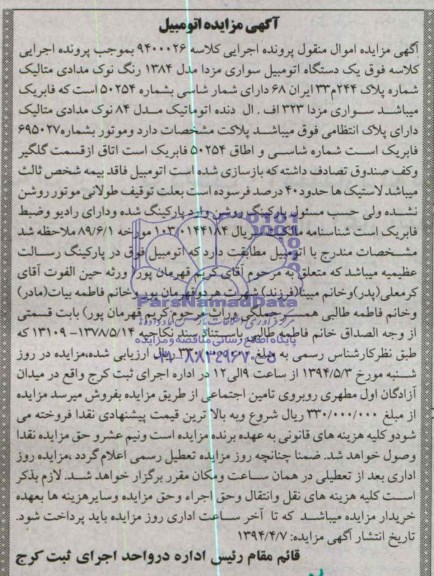 آگهی مزایده اتومبیل
آگهی مزایده اموال منقول پرونده اجرایی کلاسه ۹۴۰۰۰۲۶ بموجب پرونده اجرایی
کلاسه فوق یک دستگاه اتومبیل سواری مزدا مدل ۱۳۸۴ رنگ نوک مدادی متالیک
شماره پلاک ۲۴۴م۳۳ ایران ۶۸ دارای شمار شاسی بشماره ۵۰۲۵۴ است که فابریک
میباشد سواری مزدا ۳۲۳ اف. ال دنده اتوماتیک مدل ۸۴ نوک مدادی متالیک
دارای پلاک انتظامی فوق میباشد پلاکت مشخصات دارد وموتور بشماره۶۹۵۰۲۷
فابریک است شماره شاسی و اطاق ۵۰۲۵۴ فابریک است اتاق ازقسمت گلگیر
وکف صندوق تصادف داشته که بازسازی شده است اتومبیل فاقد بیمه شخص ثالث
میباشد لاستیک ها حدود۴۰ درصد فرسوده است بعلت توقیف طولانی موتور روشن
نشده ولی حسب مسئول پارکینگ روشن وارد پارکینگ شده ودارای رادیو وضبط
فابریک است شناسنامه مالکیت سریال ۱۰۳۰۱۴۴۱۸۴ مورخه ۸۹/۶/۱ ملاحظه شد
مشخصات مندرج با اتومبیل مطابقت دارد که اتومبیل فوق در پارکینگ رسالت
عظیمیه میباشد که متعلق به مرحوم آقای کریم قهرمان پور( ورثه حین الفوت آقای
کرمعلی(پدر)وخانم مبینا(فرزند) شهرت هردو قهرمان پور وخانم فاطمه بیات(مادر)
وخانم فاطمه طالبی همسر جملگی وراث مرحوم کریم قهرمان پور) بابت قسمتی
از وجه الصداق خانم فاطمه طالبی مستند سند نکاحیه ۱۳۷۸۵/۱۴-۱۳۱۰۹ که
طبق نظرکارشناس رسمی به مبلغ ریال ارزیابی شده،مزایده در روز
شنبه مورخ ۱۳۹۴/۵/۳ از ساعت ۹الی۱۲ در اداره اجرای ثبت کرج واقع در میدان
آزادگان اول مطهری روبروی تامین اجتماعی از طریق مزایده بفروش میرسد مزایده
از مبلغ ۳۳۰/۰۰۰/۰۰۰ ریال شروع وبه بالا ترین قیمت پیشنهادی نقدا فروخته می
شودو کلیه هزینه های قانونی به عهده برنده مزایده است ونیم عشرو حق مزایده نقدا
وصول خواهد شد. ضمنا چنانچه روز مزایده تعطیل رسمی اعلام گردد ،مزایده روز
اداری بعد از تعطیلی در همان ساعت ومکان مقرر برگزار خواهد شد. لازم بذکر
است کلیه هزینه های نقل وانتقال وحق اجراء وحق مزایده وسایرهزینه ها بعهده
خریدار مزایده میباشد که تا آخر ساعت اداری روز مزایده باید پرداخت شود.
تاریخ انتشار آگهی مزایده: ۱۳۹۴/۴/۷
قائم مقام رئیس اداره درواحد اجرای ثبت کرج
ParsNamadData
پایگاه اطلاع رسانی مناقصه و مزایده
۰۲۱-۸۸۳۴۹۶۷۰